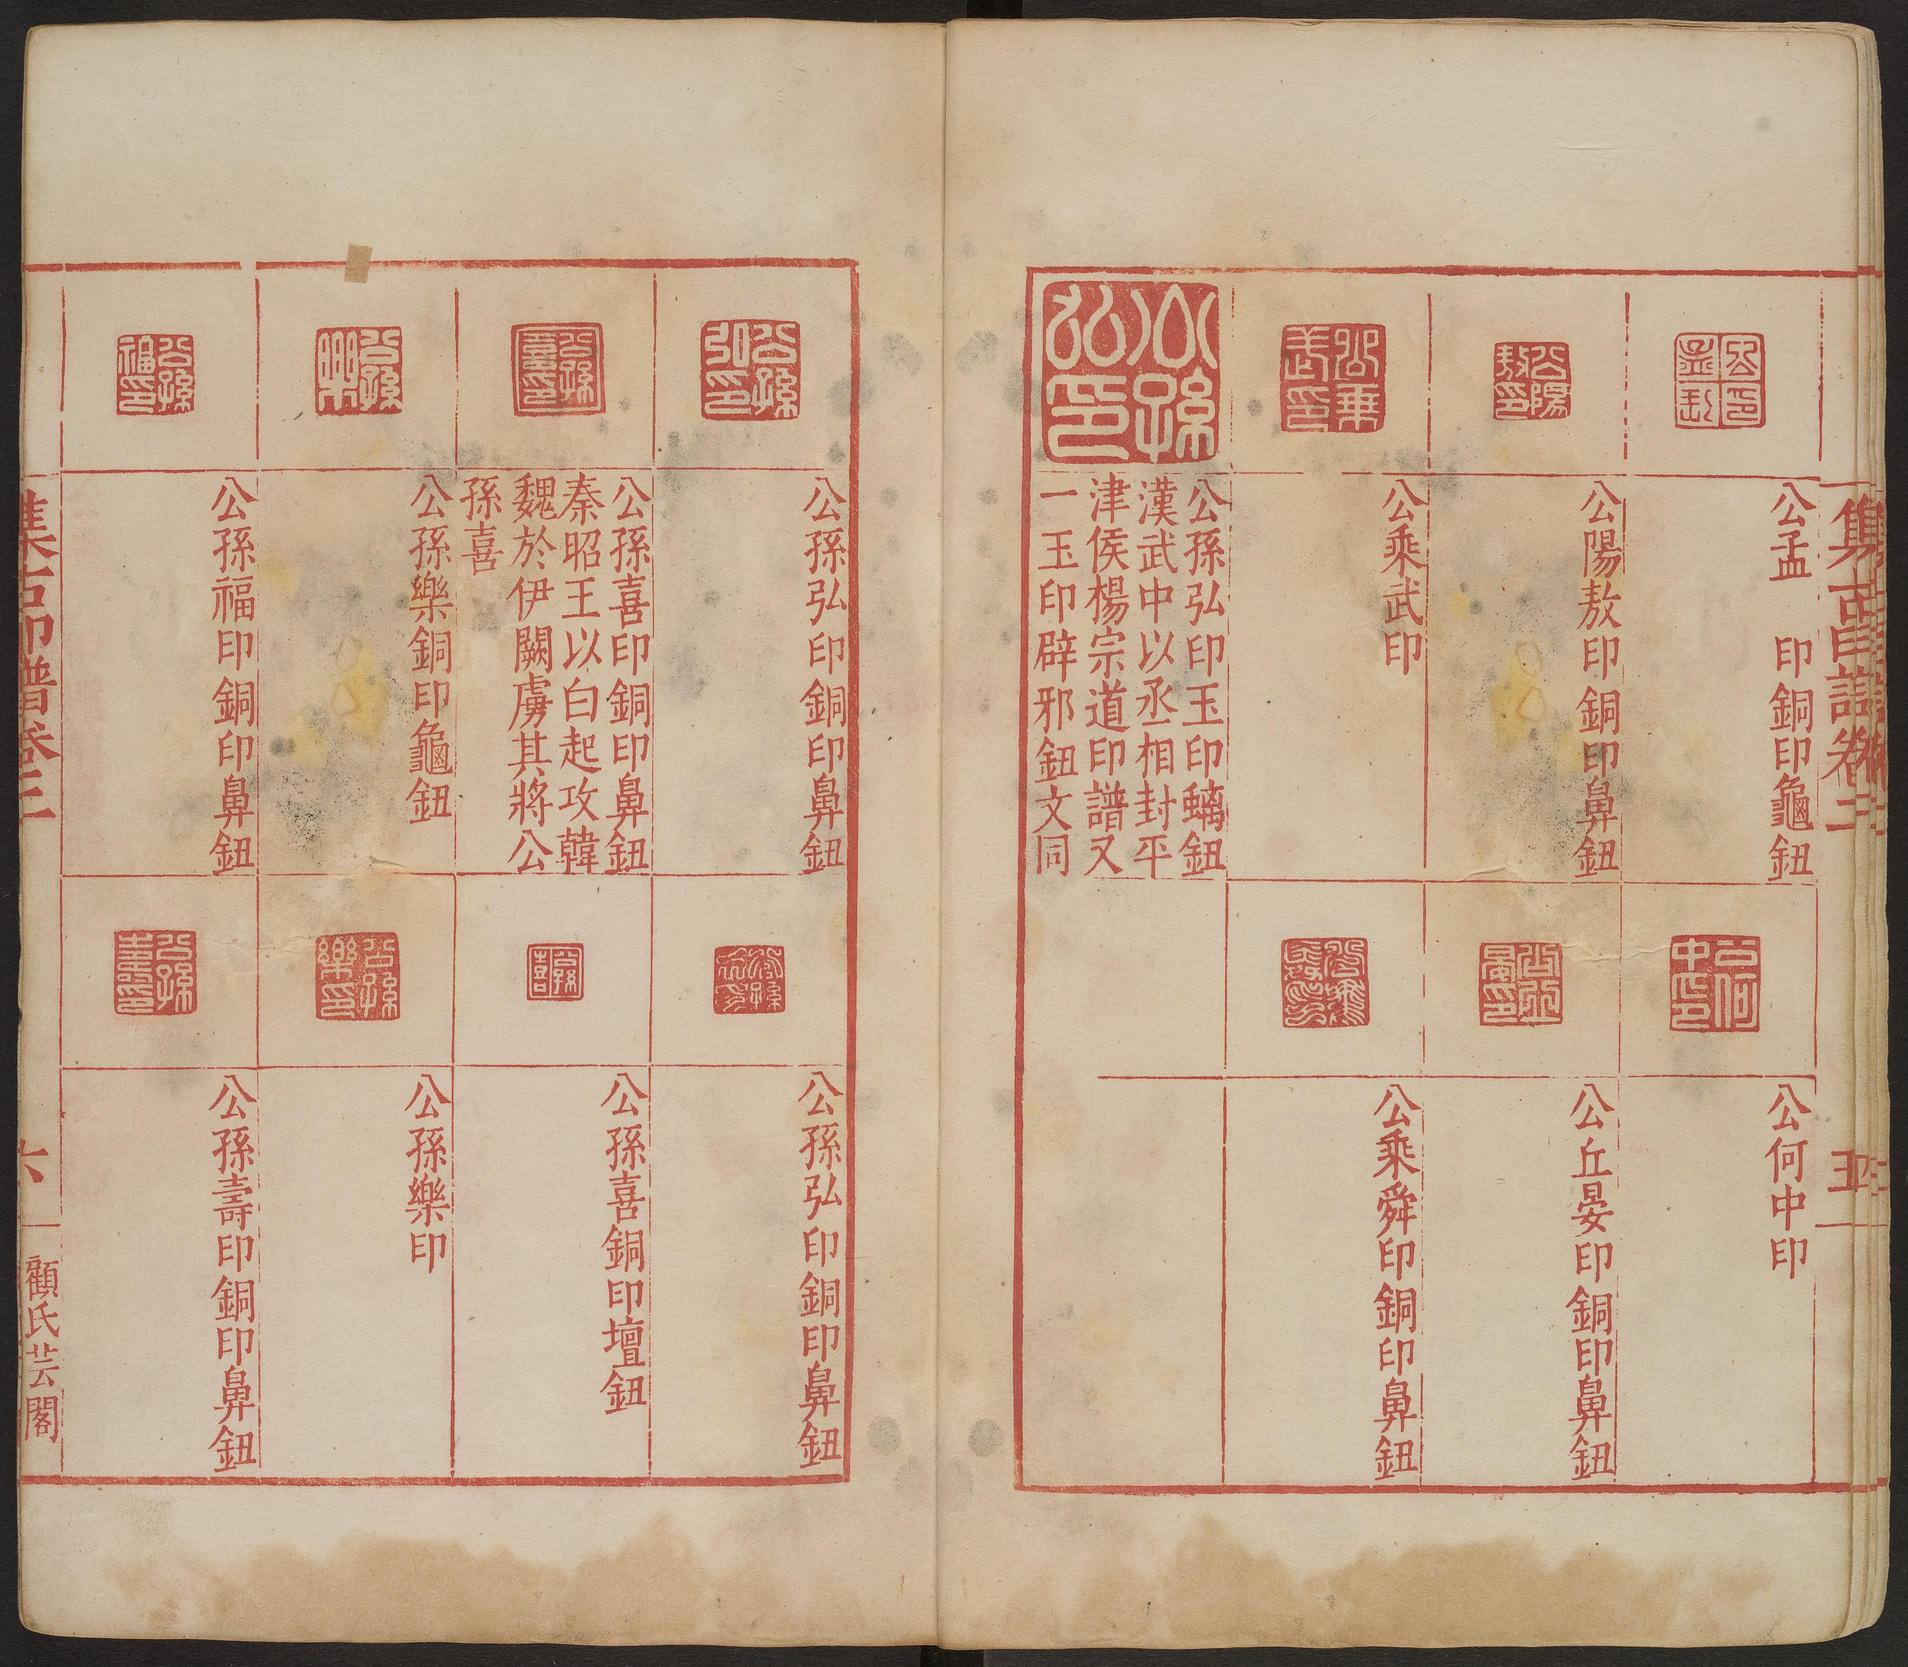 集古印譜卷三
五
公孟　印銅印龜鈕
公陽敖印銅印鼻鈕
公乘武印
公孫弘印玉印螭鈕
漢武中以丞相封平
津侯楊宗道印譜又
一玉印辟邪鈕文同
公何中印
公丘晏印銅印鼻鈕
公乘舜印銅印鼻鈕
公孫弘印
公孫弘印銅印鼻鈕
公孫喜印銅印鼻鈕
秦昭王以白起攻韓
魏於伊闕虜其將公
孫喜
公孫樂銅印龜鈕
公孫福印銅印鼻鈕
公孫弘印銅印鼻鈕
公孫喜銅印壇鈕
公孫樂印
公孫壽印銅印鼻鈕
公孫弘印
公孫樂
公孫福印
公孫喜
公孫樂印
公孫壽印
集古印譜卷三
六
顧氏芸閣